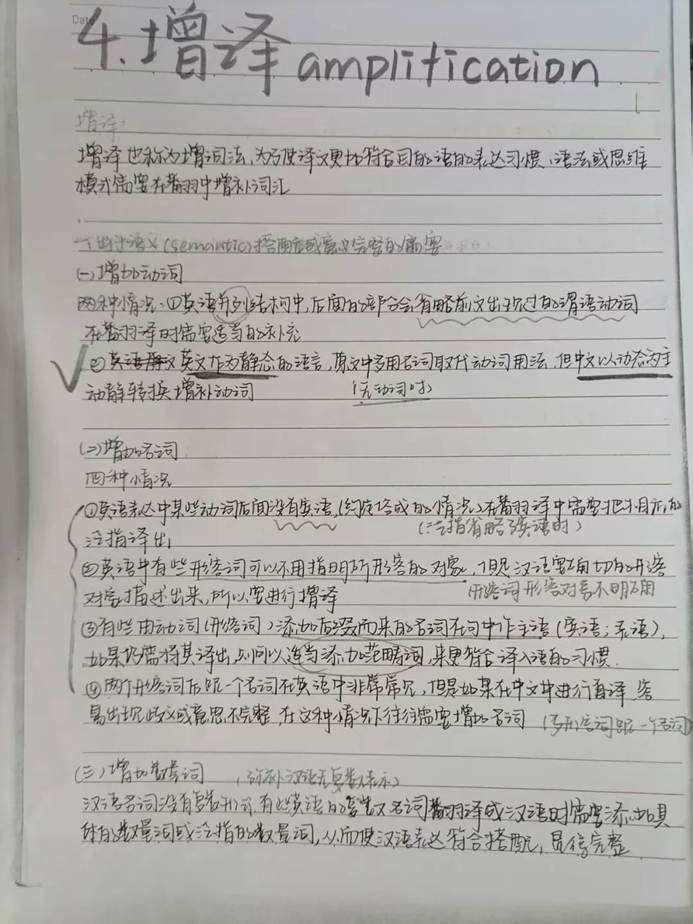 Date
4.增译 amplification
增译:
增译也称为增词法,为了使译文更加符合目的语的表达习惯、语法或思维
模式需要在翻译中增补词汇
一、出于语义(semantic)搭配或意义完整的需要
(一)增加动词
两种情况:①英语并列结构中,后面的部分会省略前文出现过的谓语动词
在翻译时需要适当的补充
②英文作为静态的语言,原文中多用名词取代动词用法,但中文以动态为主
动静转换增补动词 (无动词时)
(二)增加名词
四种情况
①英语表达中某些动词后面没有宾语,(约定俗成的情况)在翻译中需要把不目标的
泛指译出 (泛指省略了宾语时)
②英语中有些形容词可以不用指明所形容的对象,但是汉语要确切的形容
对象描述出来,所以要进行增译 形容词形容对象不明确
③有些由动词(形容词)添加后缀而来的名词在句中作主语(宾语;表语),
如果仍需将其译出,则可以适当添加范畴词,来更符合译入语的习惯.
④两个形容词后跟一个名词在英语中非常常见,但是如果在中文中进行直译 容
易出现歧义或意思不完整,在这种情况下往往需要增加名词 (多形容词跟一个名词)
(三)增加数量词 (弥补汉语无复数表示)
汉语名词没有复数形式,有些英语的复数名词翻译成汉语时需要添加具
体的数量词或泛指的数量词,从而使汉语表达符合搭配,显得完整